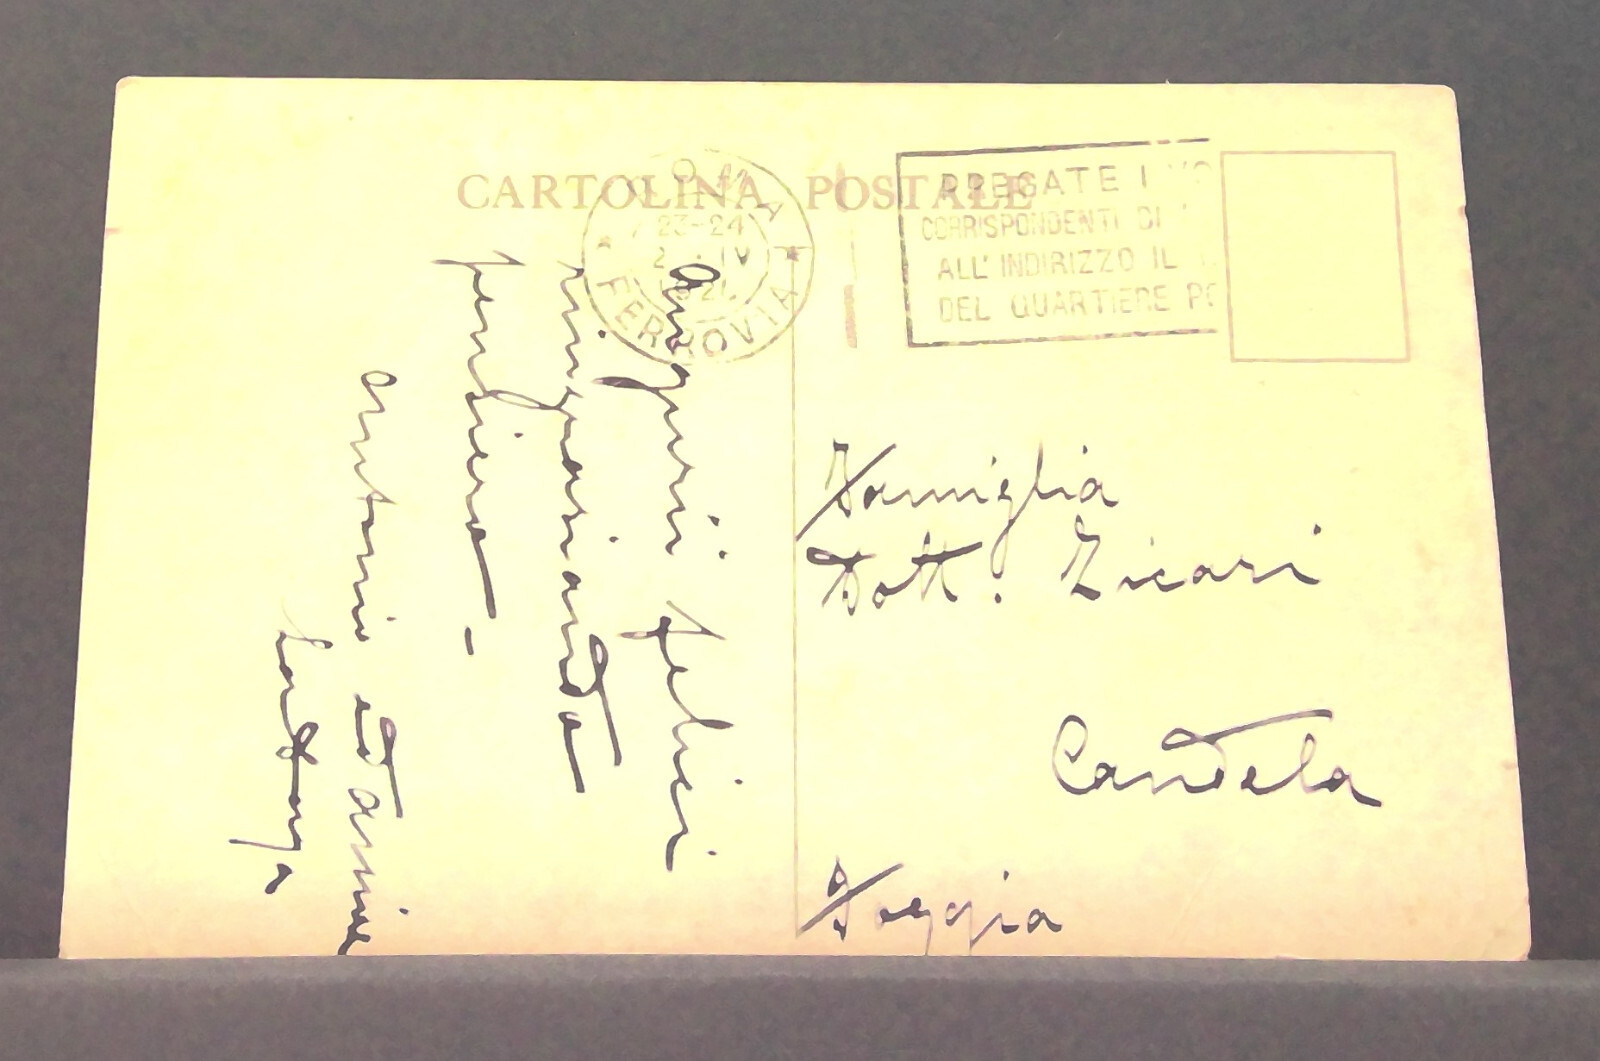 CARTOLINA POSTALE
ROMA
23-24
IV
FERROVIA
PREGATE I VO
CORRISPONDENTI DI
ALL'INDIRIZZO IL
DEL QUARTIERE PO
Auguri felici
ringraziando
pensiero -
Antonio ed amici
Famiglia
Dott. Zicari
Candela
Foggia